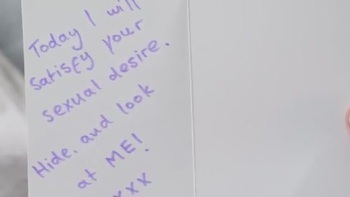 Today I will
satisfy your
sexual desire.
Hide, and look
at ME!
xxx